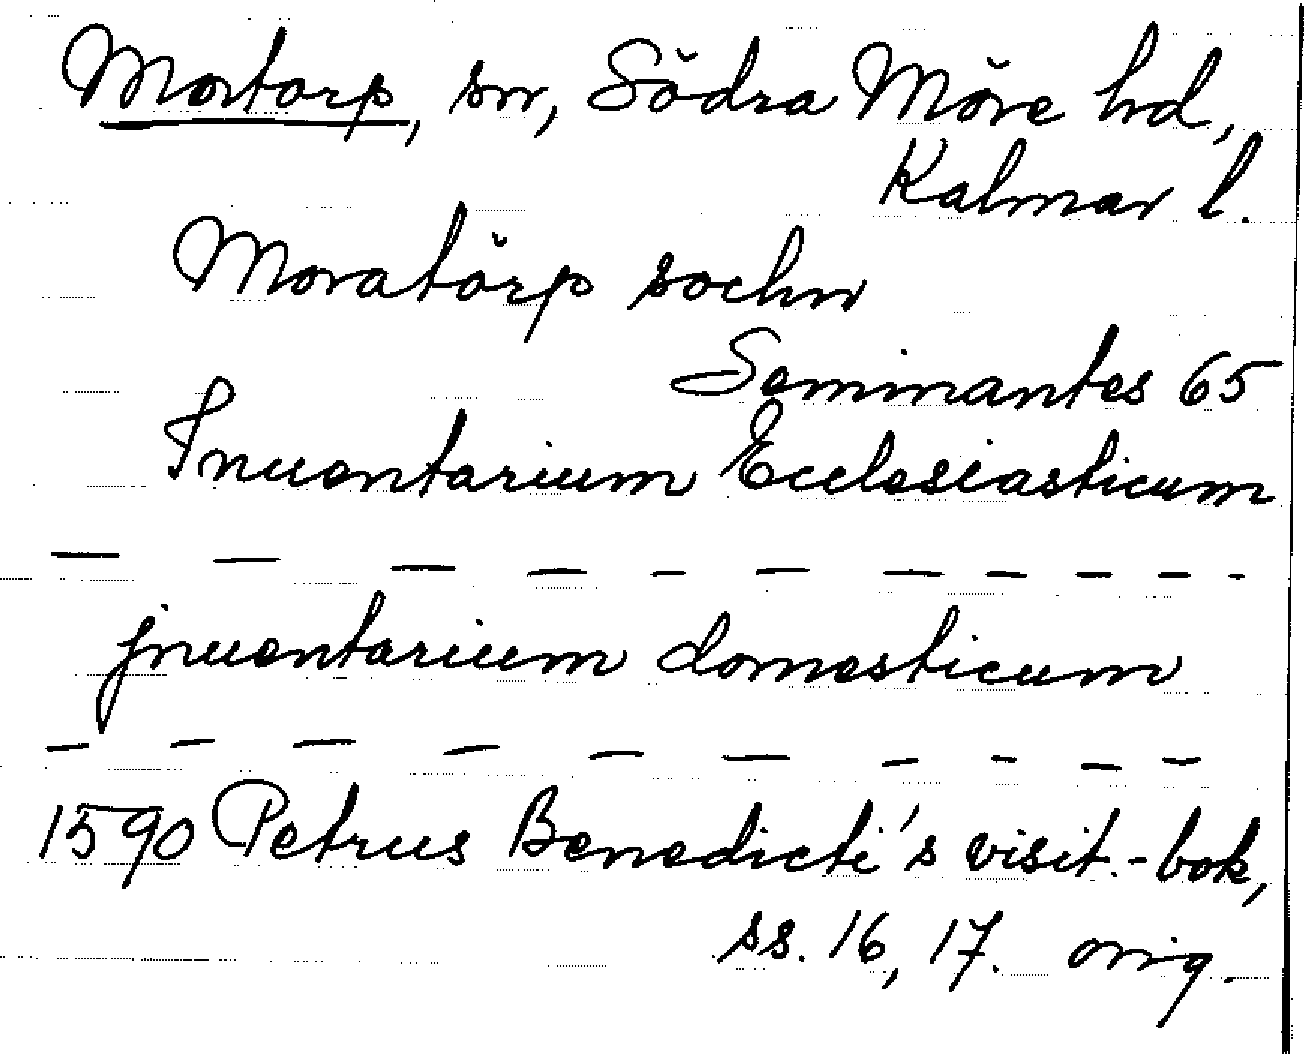 Mortorp, sn, Södra Möre hd,
Kalmar l.
Moratörp sochn
Seminantes 65
Inuentarium Ecclesiasticum
— — — — — — — — — — —
jnuentarium domesticum
— — — — — — — — — —
1590 Petrus Benedicti's visit.-bok,
ss. 16, 17. orig.